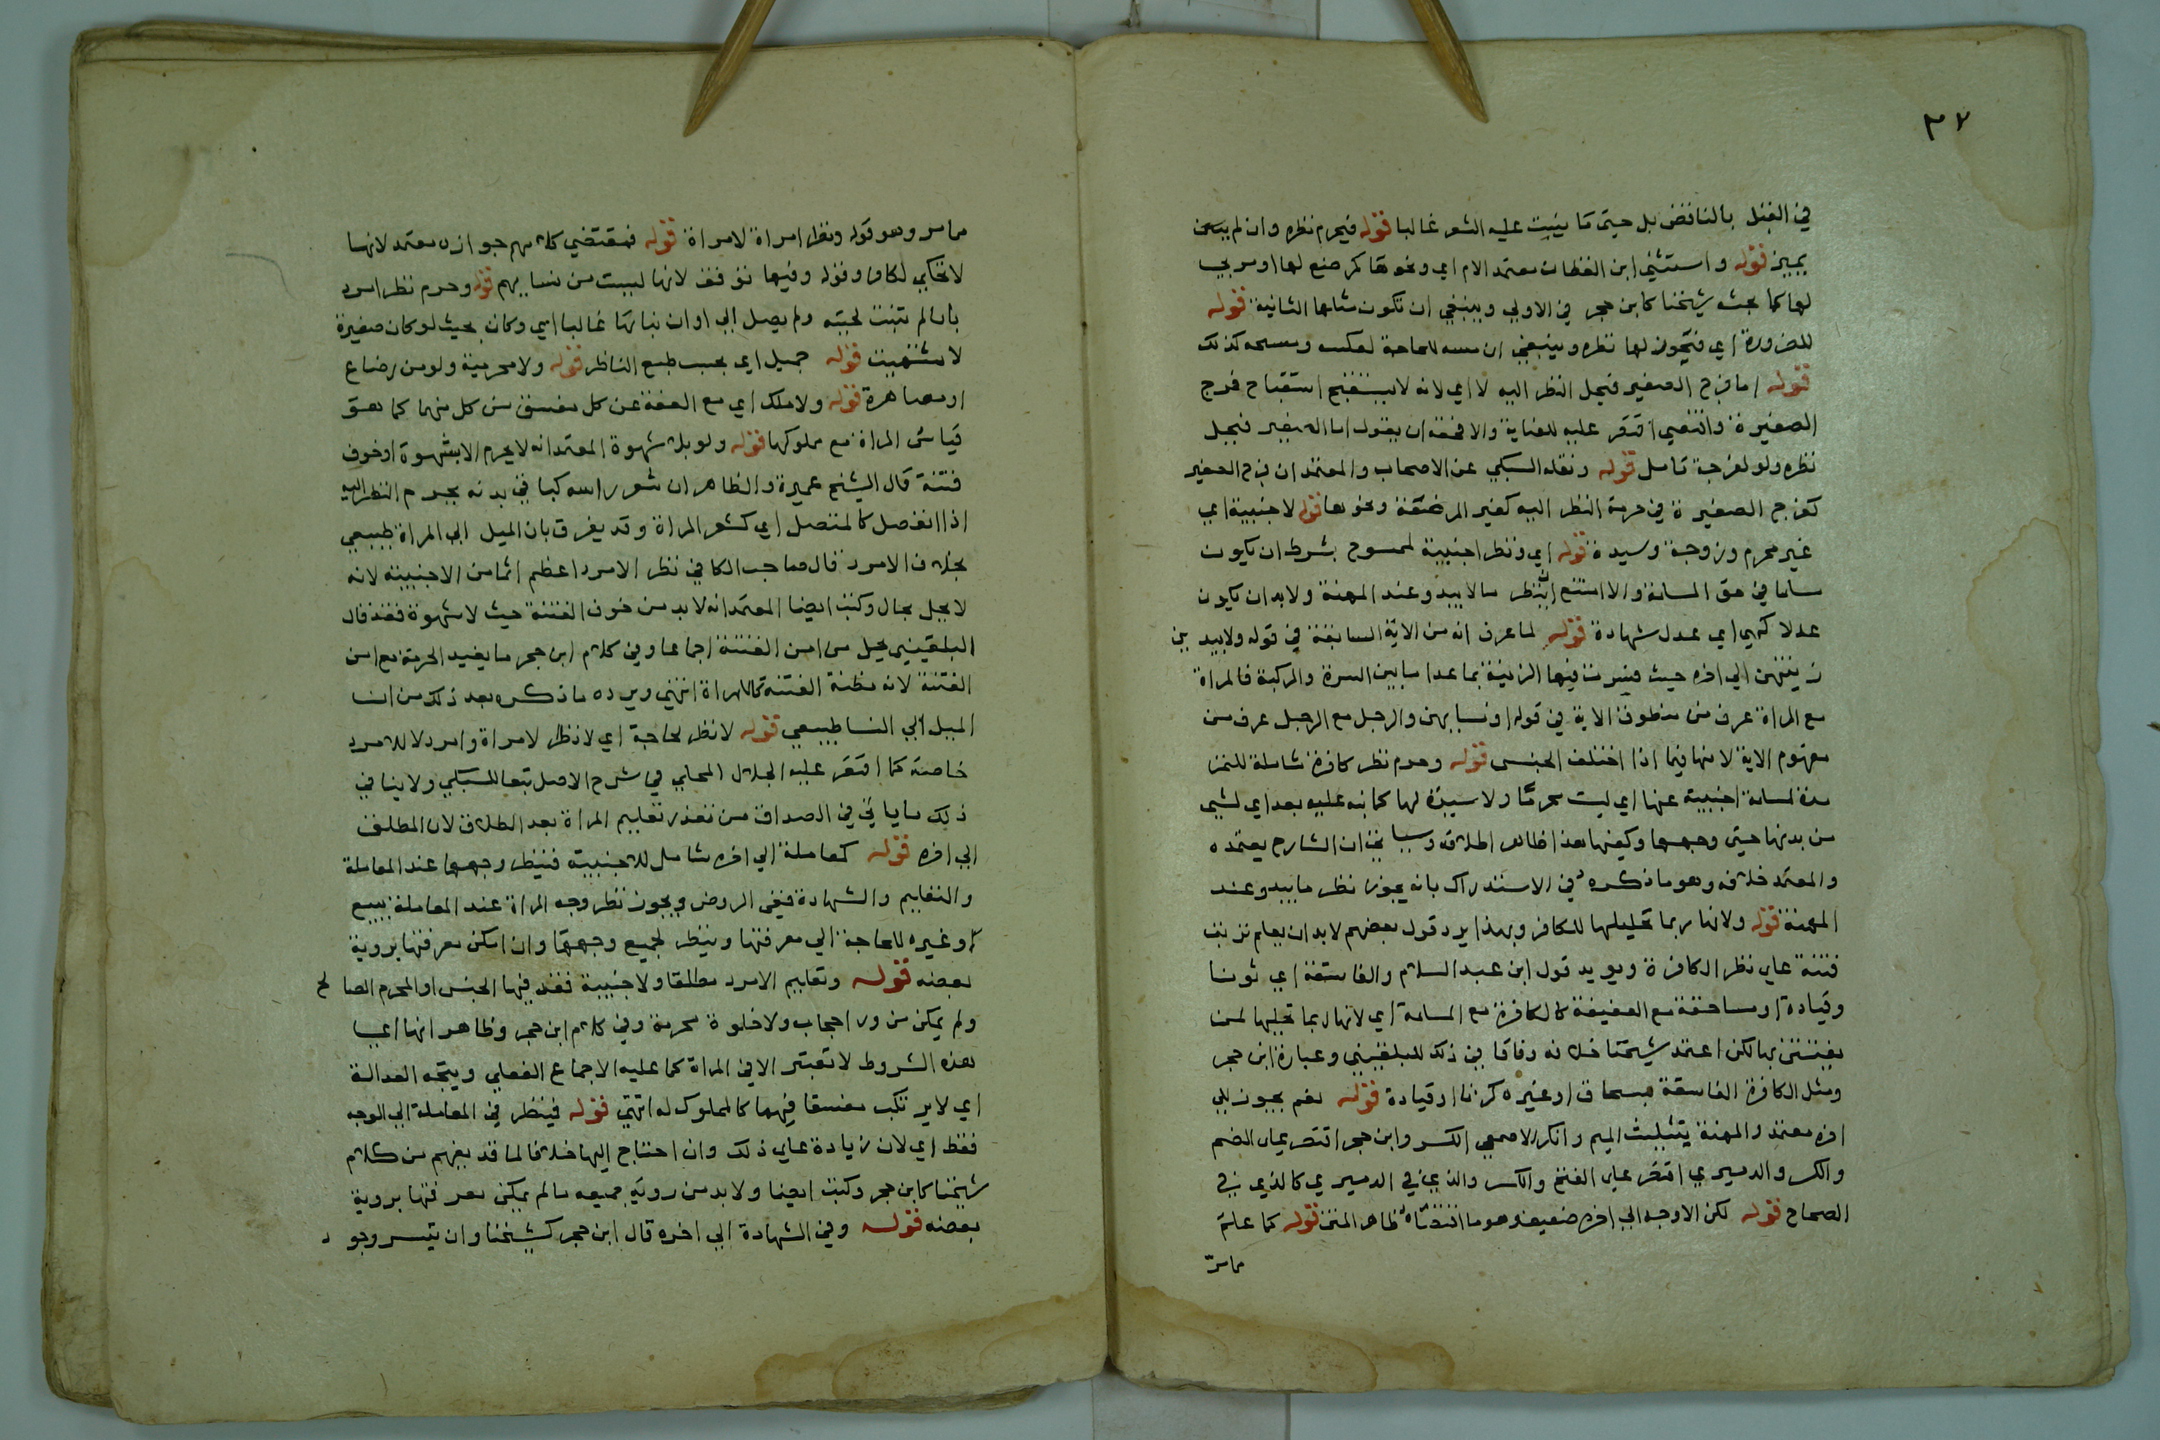 ٣٧
في القبل بالناقض بل حتى ما ينبت عليه الشعر غالبا قوله فيحرم نظره وان لم يتعين
يميز قوله واستثنى ابن القطان معتمد الام اي ونحوها كمرضع لها او مربي
لها كما بحثه شيخنا كابن حجر في الاولى وينبغي ان تكون مثلها الثانية قوله
للضرورة اي فيجوز لها نظره وينبغي ان مسه للحاجة لعكسه ومسحه كذلك
قوله اما فرج الصغير فيحل النظر اليه لا اي لانه لا يستقبح استقباح فرج
الصغيرة واقتضى اقتصر عليه للعناية والا فحقه ان يقول اما الصغير فيحل
نظره ولو لفرجه تامل قوله ونقله السبكي عن الاصحاب والمعتمد ان فرج الصغير
كفرج الصغيرة في حرمة النظر اليه كغير المرضعة ونحوها قوله لاجنبية اي
غير محرم وزوجة وسيدة قوله اي ونظر اجنبية لممسوح بشرط ان يكون
مسلما في حق المسلمة والا امتنع النظر ما لا يبدو عند المهنة ولا بد ان يكون
عدلا كهي اي عدل شهادة قوله لما عرف انه من الاية السابقة في قوله ولا يبدين
زينتهن الى اخره حيث فسرت فيها الزينة بما عدا ما بين السرة والركبة فالمراة
مع المراة عرف من منطوق الاية في قوله او نسايهن والرجل مع الرجل عرف من
مفهوم الاية لانها فيما اذا اختلف الجنس قوله وحرم نظر كافرة شاملة للمرتدة
لمسلمة اجنبية عنها اي ليست محرما ولا سيدة لها كما نبه عليه بعد اي لشي
من بدنها حتى وجهها وكفيها هذا ظاهر اطلاقه وسيا تي ان الشارح يعتمده
والمعتمد خلافه وهو ما ذكره في الاستدراك بانه يجوز نظر ما يبدو عند
المهنة قوله ولانها ربما تحكيها للكافر وبهذا يرد قول بعضهم لا بد ان يعلم ترتب
فتنة على نظر الكافرة ويويد قول ابن عبد السلام والفاسقة اي ثونا
وقيادة او مساحقة مع العفيفة كالكافرة مع المسلمة اي لانها ربما تحكيها لمن
يفتتن بها لكن اعتمد شيخنا خلافه وفاقا في ذلك للبلقيني وعبارة ابن حجر
ومثل الكافرة الفاسقة بسحاق او غيره كزنا او قيادة قوله نعم يجوز الى
اخره معتمد والمهنة بتثليث الميم وانكر الاصمعي الكسر وابن حجر اقتصر على الضم
والكسر والدميري اقتصر على الفتح والكسر والذي في الدميري كالذي في
الصحاح قوله لكن الاوجه الى اخره ضعيف وهو ما اقتضاه ظاهر المتن قوله كما علم
مما مر
مما مر وهو قوله ونظر امراة لامراة قوله فمقتضى كلامهم جوازه معتمد لانها
لا تحكي لكافر وقوله وفيها توقف لانها ليست من نسايهم قوله وحرم نظر امرد
بان لم تنبت لحيته ولم يصل الى اوان نباتها غالبا اي وكان بحيث لو كان صغيرة
لاشتهيت قوله جميل اي بحسب طبع الناظر قوله ولا محرمية ولو من رضاع
او مصاهرة قوله ولا ملك اي مع العفة عن كل مفسق من كل منهما كما هو
قياس المراة مع مملوكها قوله ولو بلا شهوة المعتمد انه لا يحرم الا بشهوة او خوف
فتنة قال الشيخ عميرة والظاهر ان شعر راسه كباقي بدنه يحرم النظر اليه
اذا انفصل كالمتصل اي كشعر المراة وقد يفرق بان الميل الى المراة طبيعي
بخلاف الامرد قال صاحب الكافي نظر الامرد اعظم اثما من الاجنبية لانه
لا يحل بحال وكتب ايضا المعتمد انه لا بد من خوف الفتنة حيث لا شهوة فقد قال
البلقيني يحل من امن الفتنة اجماعا وفي كلام ابن حجر ما يفيد الحرمة مع امن
الفتنة لانه مظنة الفتنة كالمراة انتهى ويرده ما ذكره بعد ذلك من ان
الميل الى النسا طبيعي قوله لا نظر لحاجة اي لا نظر لامراة وامرد لا للامرد
خاصة كما اقتصر عليه الجلال المحلي في شرح الاصل تبعا للسبكي ولا ينافي
ذلك ما ياتي في الصداق من تعذر تعليم المراة بعد الطلاق لان المطلف
الى اخره قوله كمعاملة الى اخره شامل للاجنبية فينظر وجهها عند المعاملة
والتعليم والشهادة ففي الروض ويجوز نظر وجه المراة عند المعاملة ببيع
او غيره للحاجة الى معرفتها وينظر لجميع وجهها وان امكن معرفتها بروية
بعضه قوله وتعليم الامرد مطلقا ولاجنبية فقد فيها الجنس او المحرم الصالح
ولم يمكن من ورا حجاب ولا خلوة محرمة وفي كلام ابن حجر وظاهر انها اي
هذه الشروط لا تعتبر الا في المراة كما عليه الاجماع الفعلي ويتجه العدالة
اي لا يرتكب مفسقا فيهما كالمملوك له انتهى قوله فينظر في المعاملة الى الوجه
فقط اي لان زيادة على ذلك وان احتاج اليها خلافا لما قد يفهم من كلام
شيخنا كابن حجر وكتب ايضا ولا بد من روية جميعه ما لم يمكن معرفتها بروية
بعضه قوله وفي الشهادة الى اخره قال ابن حجر كشيخنا وان تيسر وجود